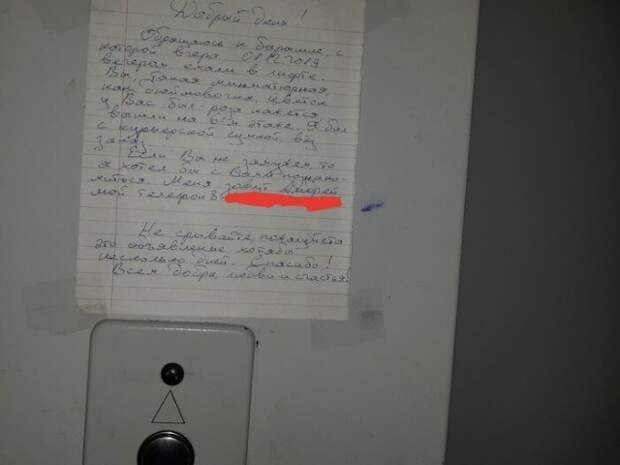 Добрый день!
Обращаюсь к барышне, с
которой вчера 01.12.2019
вечером ехали в лифте.
Вы, такая миниатюрная
как дюймовочка, цветок
у Вас был - роза кажется
вышли на 6-м этаже. Я был
с курьерской сумкой, вёз
заказ.
Если Вы не замужем, то
я хотел бы с Вами познако-
миться. Меня зовут Андрей
мой телефон 8
Не срывайте пожалуйста
это объявление хотябы
несколько дней. Спасибо!
Всем добра, любви и счастья!